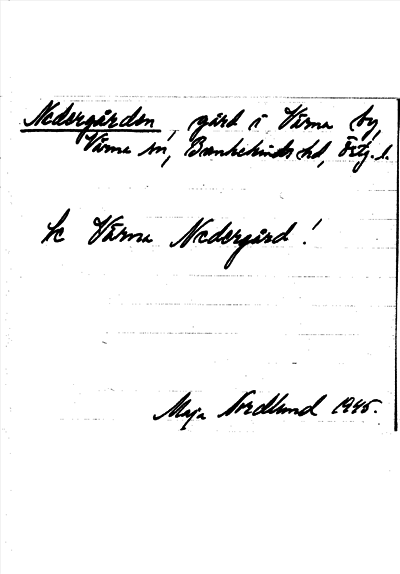 Nedergården, gård i Värna by,
Värna sn, Bankekinds hd, Östg. l.
Se Värna Nedergård!
Maja Nordlund 1945.